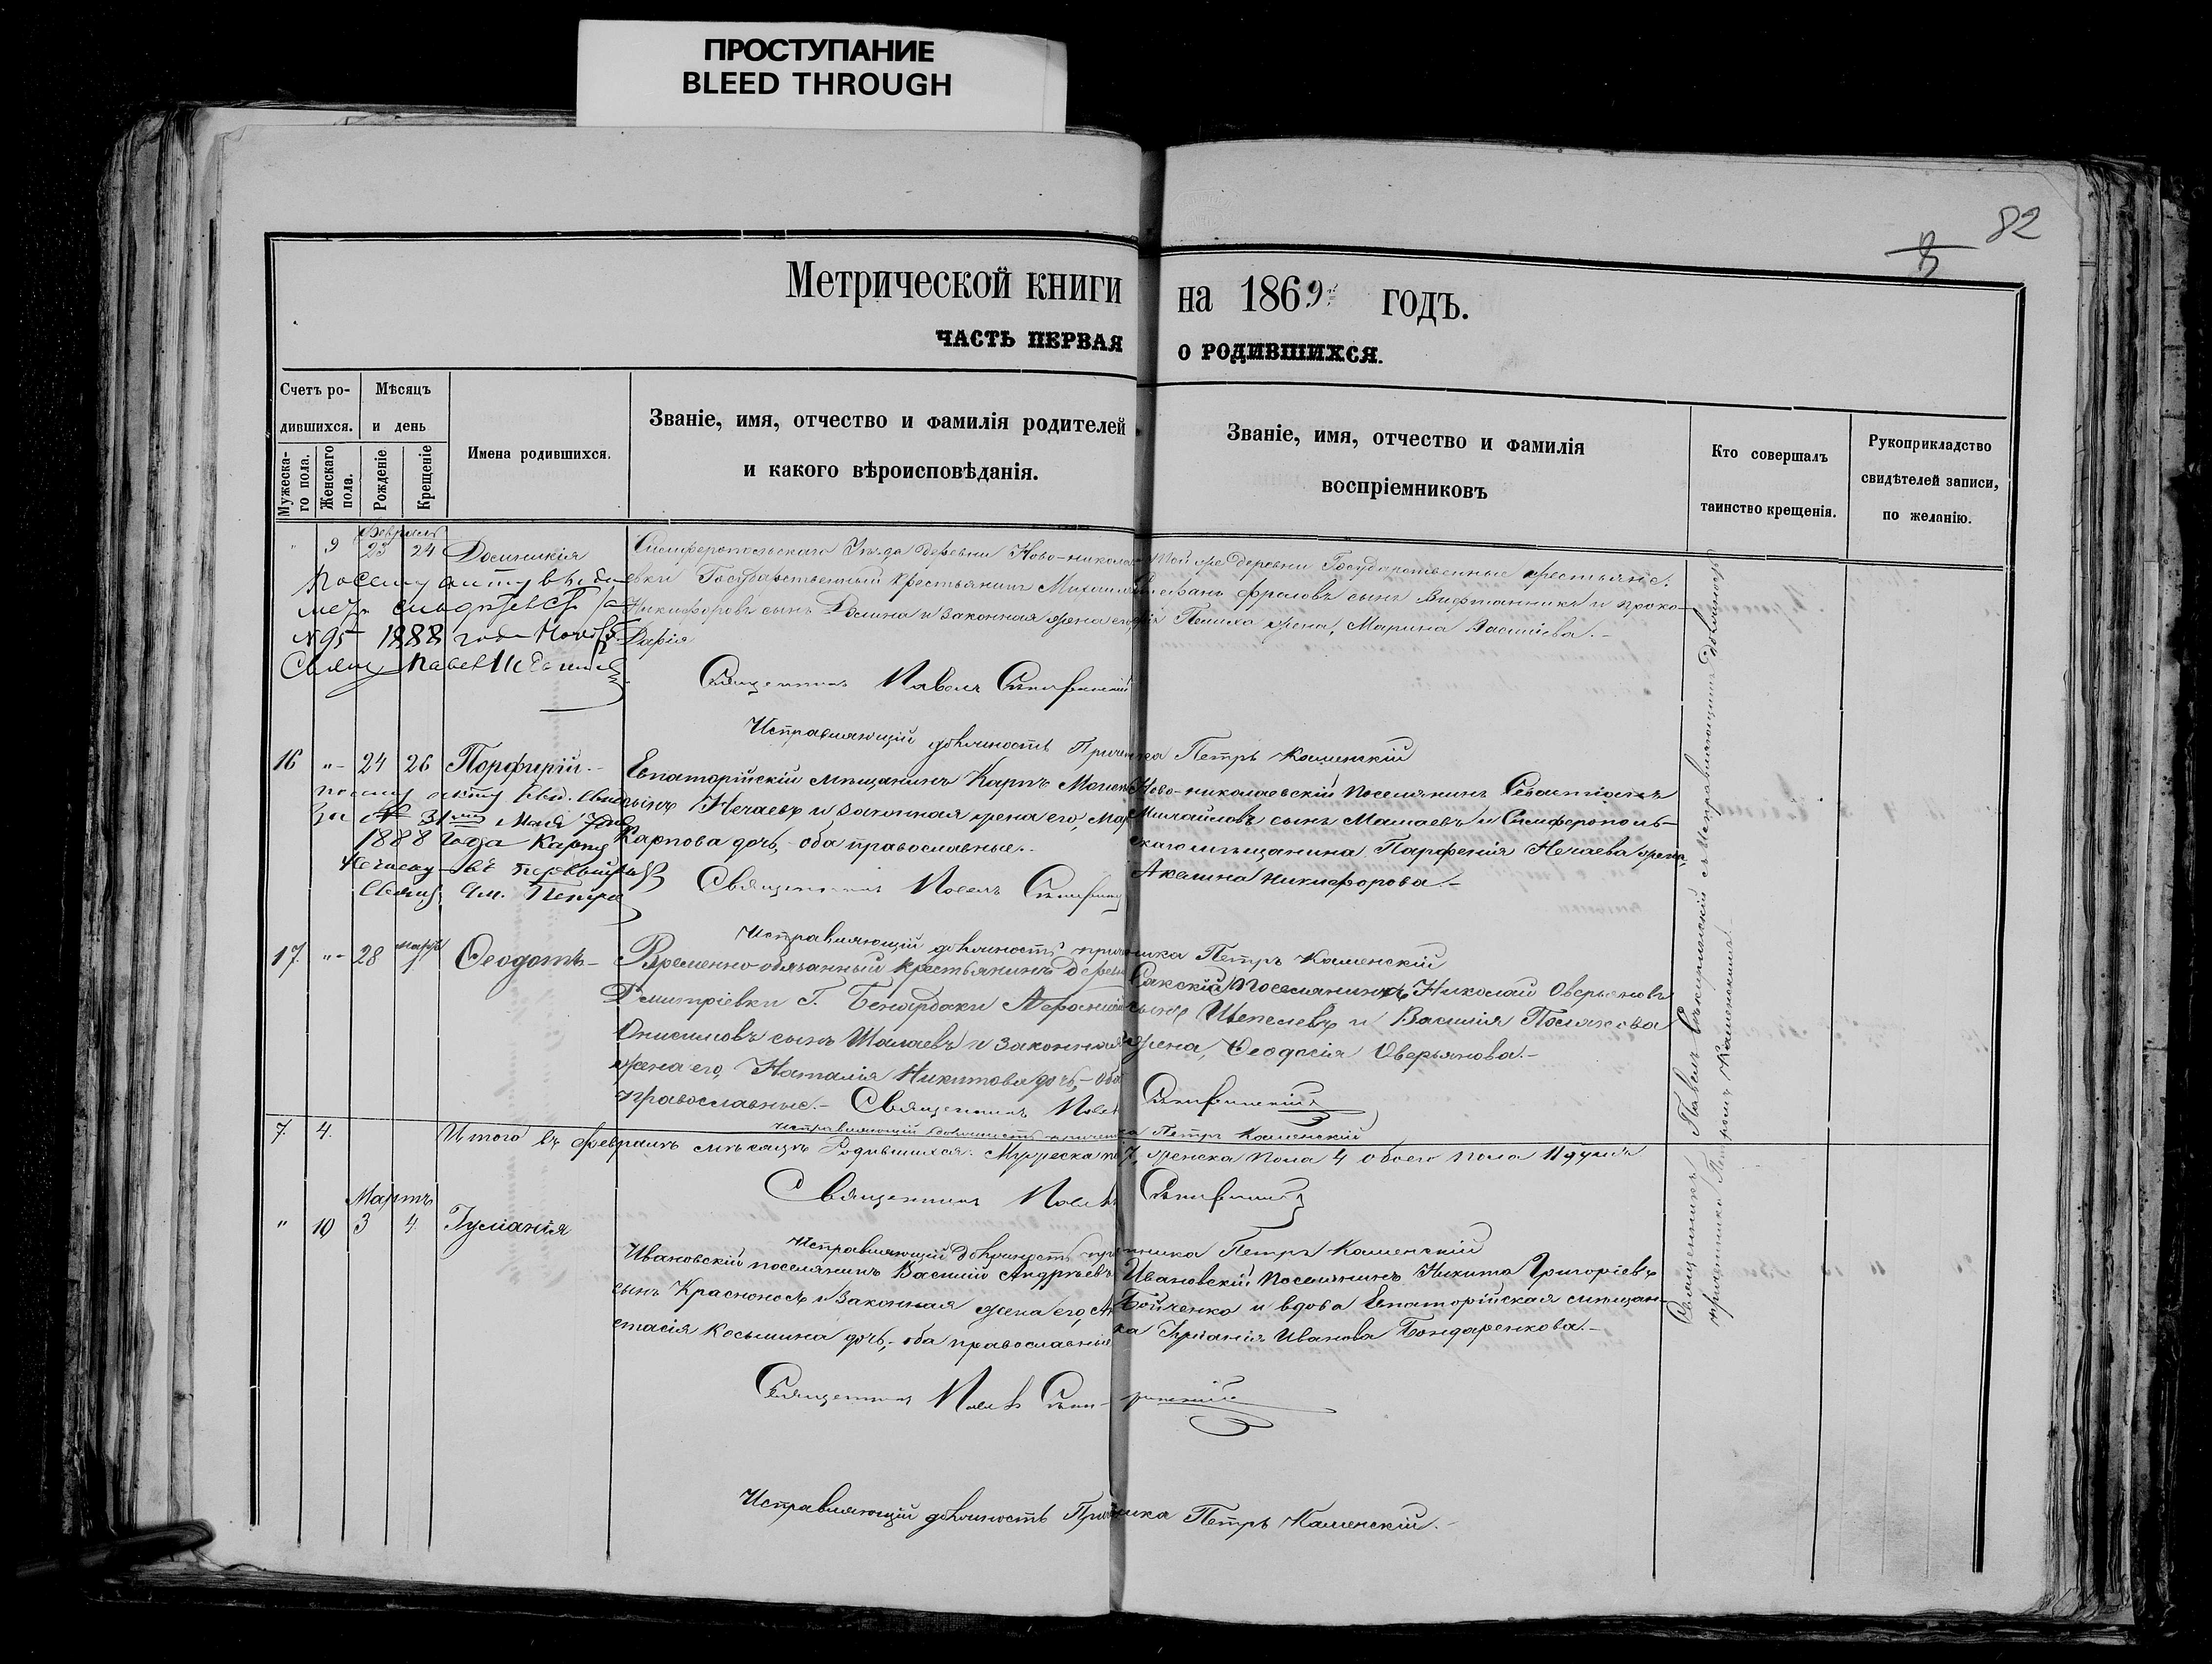 ПРОСТУПАНИЕ
BLEED THROUGH
82
Метрической книги на 1869 годъ.
ЧАСТЬ ПЕРВАЯ О РОДИВШИХСЯ.
Счетъ родившихся.
Мужескаго пола.
Женскаго пола.
Мѣсяцъ и день
Рожденіе
Крещеніе
Имена родившихся.
Званіе, имя, отчество и фамилія родителей
и какого вѣроисповѣданія.
Званіе, имя, отчество и фамилія
воспріемниковъ
Кто совершалъ
таинство крещенія.
Рукоприкладство
свидѣтелей записи,
по желанію.
Февраль
" 9 23 24 Домникія
По сему акту выдано
метр. свидѣтельст. за
№ 95 1888 года
Свящ. Павелъ
Симферопольскаго Уѣзда деревни Ново-николаевки Государственный крестьянинъ Михаилъ
Никифоровъ сынъ Долина и законная жена его,
Дарія
Той же деревни Государственные крестьяне:
Стефанъ Фроловъ сынъ и
жена, Марина Васильева.-
Священникъ Павелъ
Исправляющій должность Причетника Петръ Каменскій
16 "- 24 26 Порфирій.-
по сему акту выд. свид.
за № 31 Мая
1888 года Карпу
Нечаеву
Свящ. Петра
Евпаторійскій мѣщанинъ Карпъ
сынъ Нечаевъ и законная жена его,
Карпова дочь,- оба православные.-
Ново-николаевскій поселянинъ Севастіанъ
Михайловъ сынъ Мамаевъ и Симферопольскаго мѣщанина Парфенія Нечаева жена,
Акелина Никифорова.-
Священникъ Павелъ
Исправляющій должность причетника Петръ Каменскій
17. "- 28 мартъ 1 Ѳеодотъ-
Временно-обязанный крестьянинъ деревни
Дмитріевки Г. Бенардаки
Онисимовъ сынъ Шалаевъ и законная
жена его, Наталія Никитова дочь,- оба
православные.-
Сакскій поселянинъ Николай Оверьяновъ
сынъ Шепелевъ и Василія Полякова
жена, Ѳеодосія Оверьянова.-
Священникъ Павелъ
Исправляющій должность причетника Петръ Каменскій
7. 4. Итого въ февралѣ мѣсяцѣ Родившихся: Мужеска по. 7, женска пола 4 обоего пола 11 душъ
Священникъ Павелъ
Исправляющій должность причетника Петръ Каменскій
Мартъ
" 10 3 4. Іуліанія
Ивановскій поселянинъ Василій Андрѣевъ
сынъ Красноносъ и законная жена его, Анастасія Косьмина дочь,- оба православные
Ивановскій поселянинъ Никита Григоріевъ
Бойченко и вдова Евпаторійская мѣщанка Іуліанія Иванова Бондаренкова.-
Священникъ Павелъ
Исправляющій должность Причетника Петръ Каменскій.-
Священникъ Павелъ съ исправляющимъ должность
причетника Петромъ Каменскимъ.